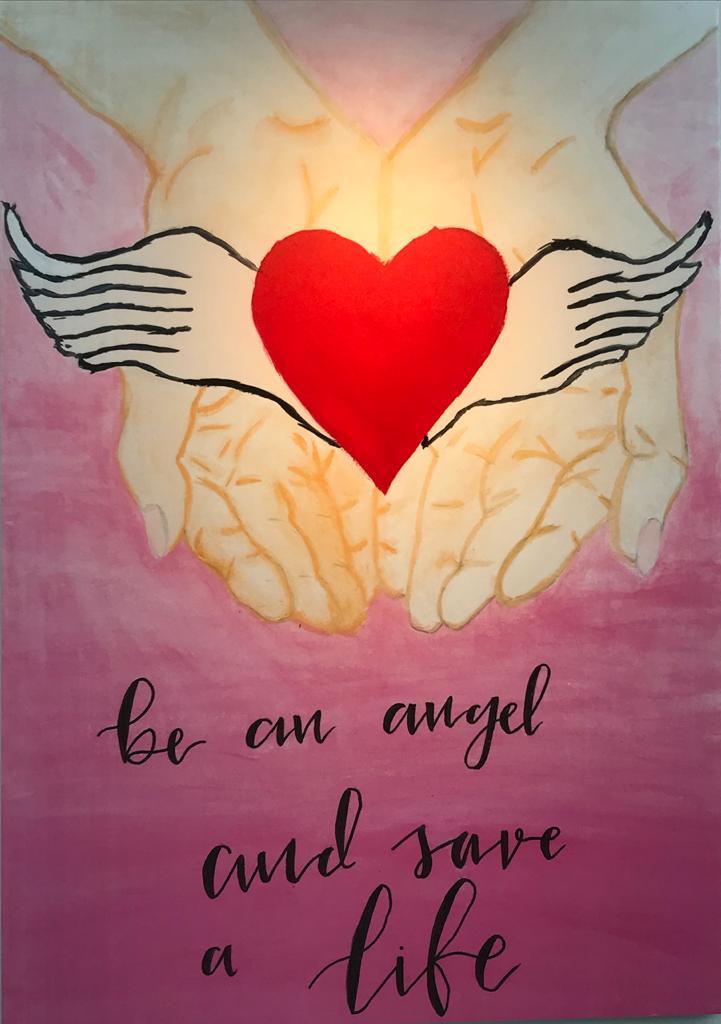 be an angel
and save
a life